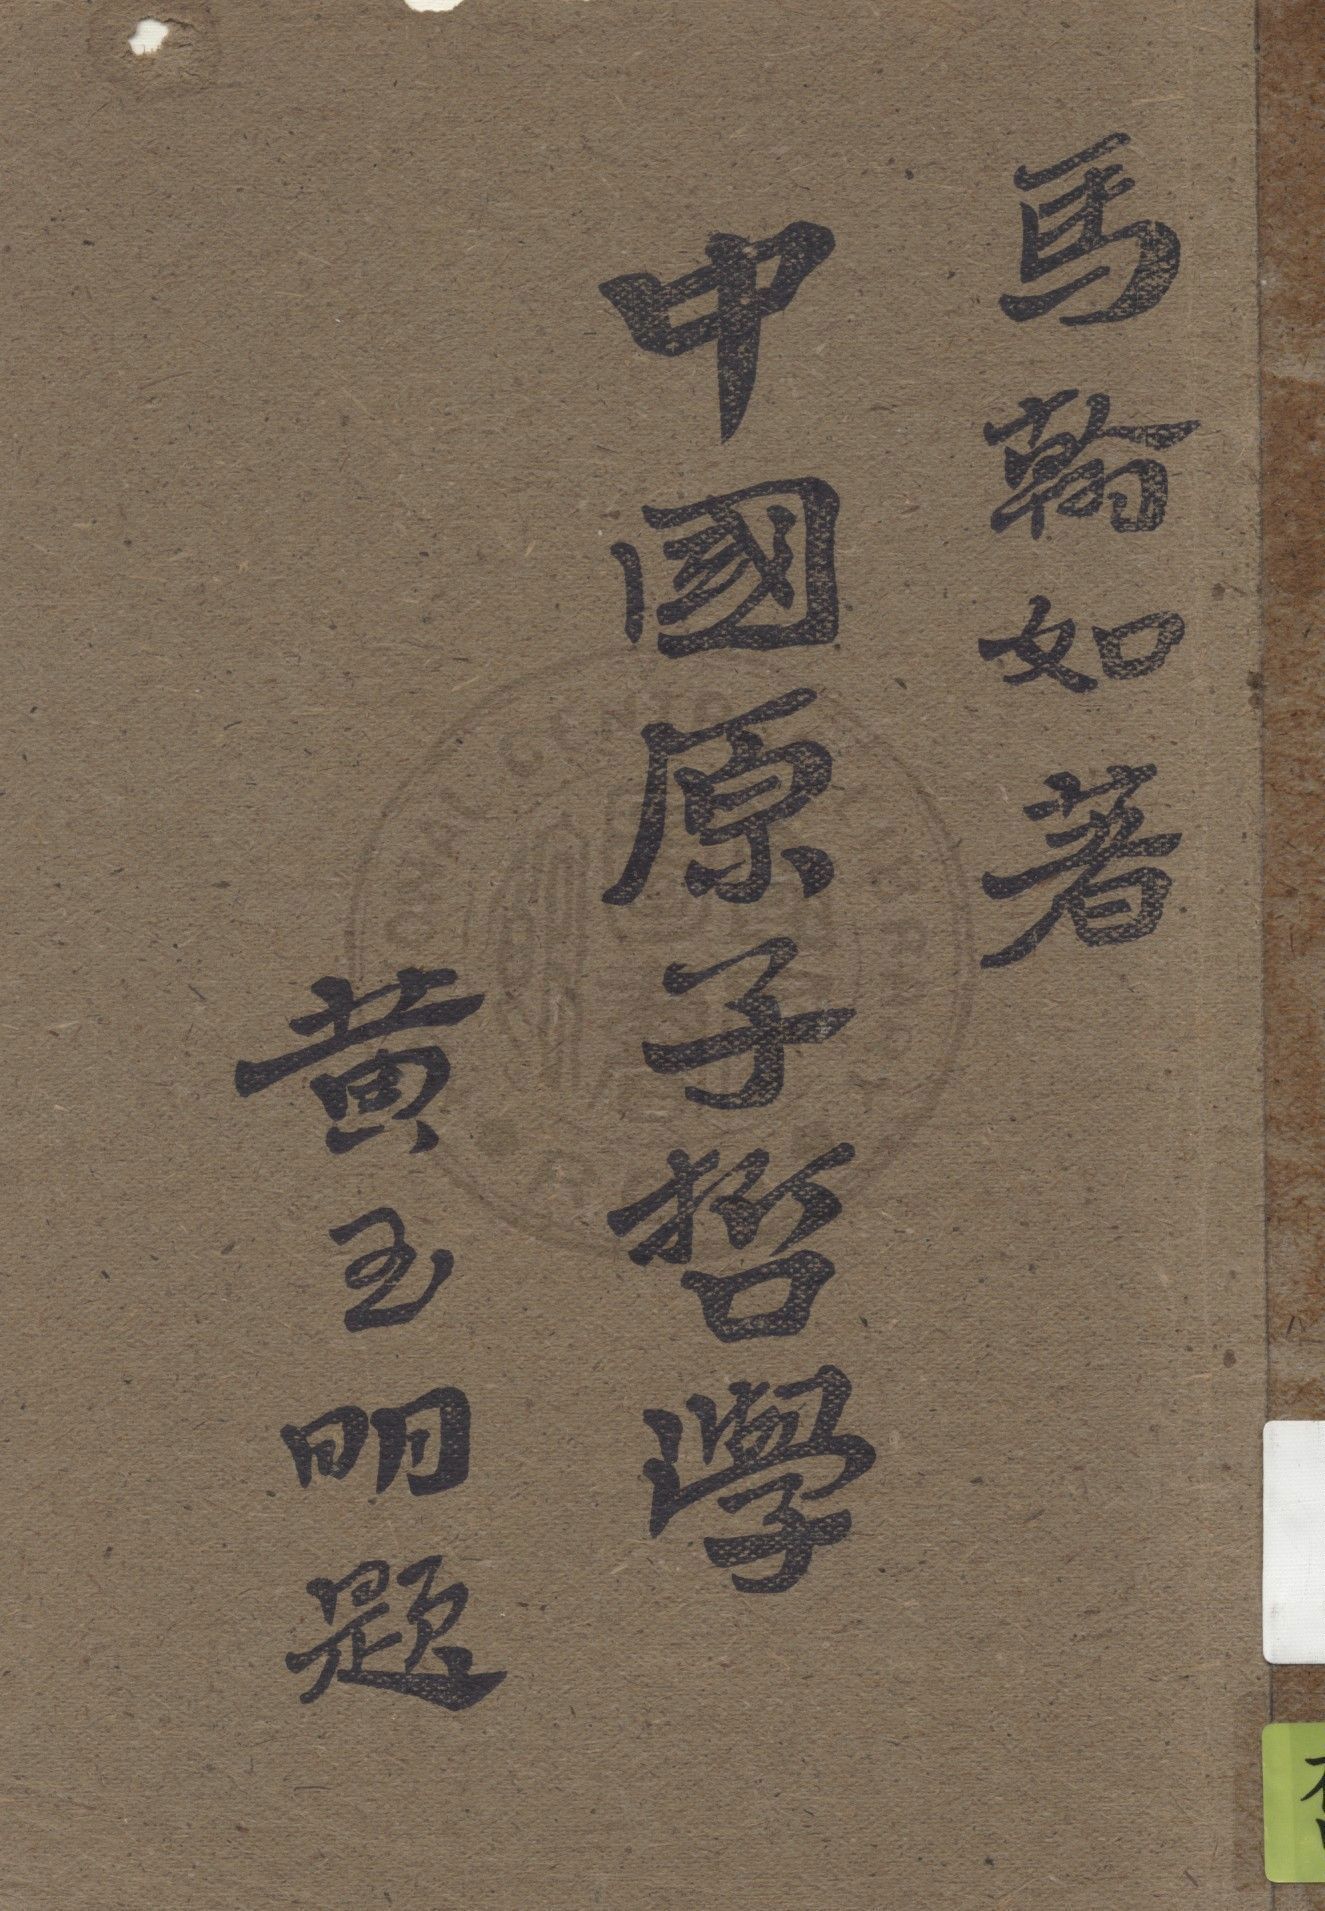 馬翰如著
中國原子哲學
黄玉明題